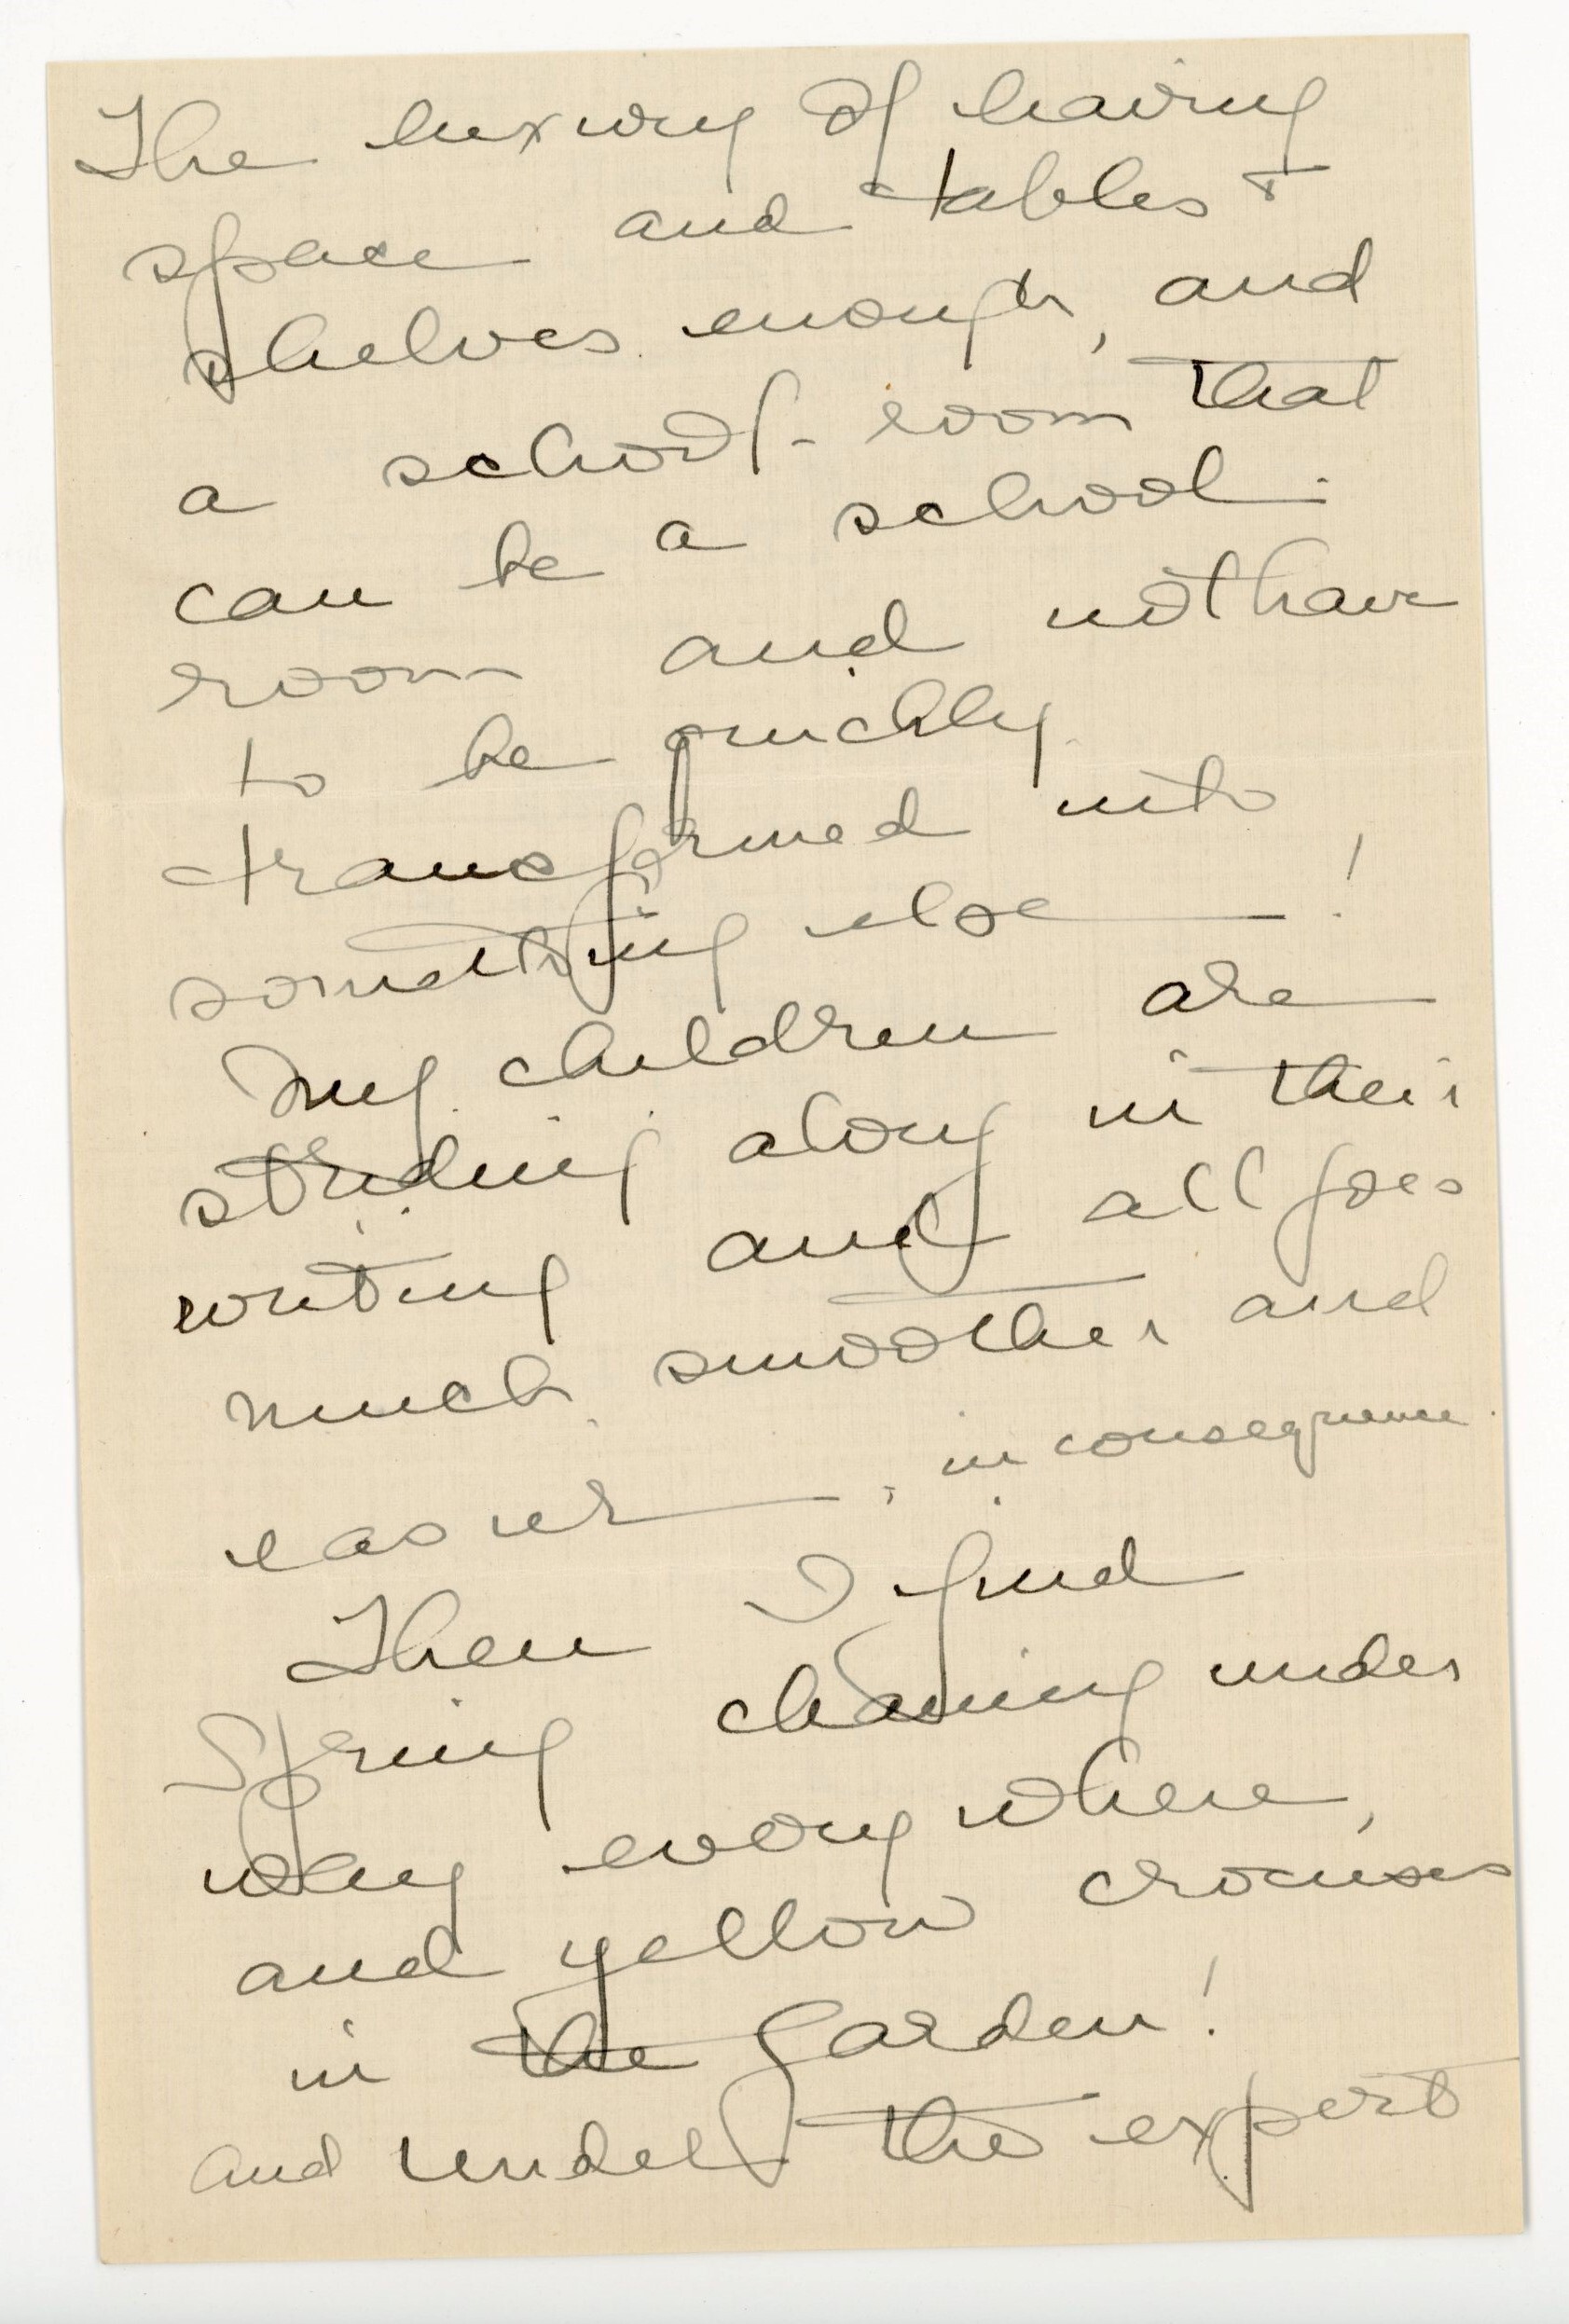 The luxury of having
space and tables &
shelves enough, and
a school-room that
can be a school
room and not have
to be quickly
transformed into
something else — !
My children are
striding along in their
writing and all goes
much smoother and
easier — , in consequence.
Then I find
Spring cleaning under
way every where,
and yellow crocuses
in the garden!
and under the expert